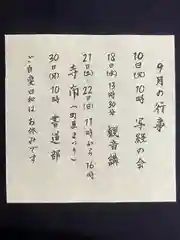 9月の行事
10日(火) 10時 写経の会
18日(水) 13時30分 観音講
21日(土)〜22日(日) 11時から16時
寺南(町屋まつり)
30日(月) 10時 書道部
ご自愛日和はお休みです